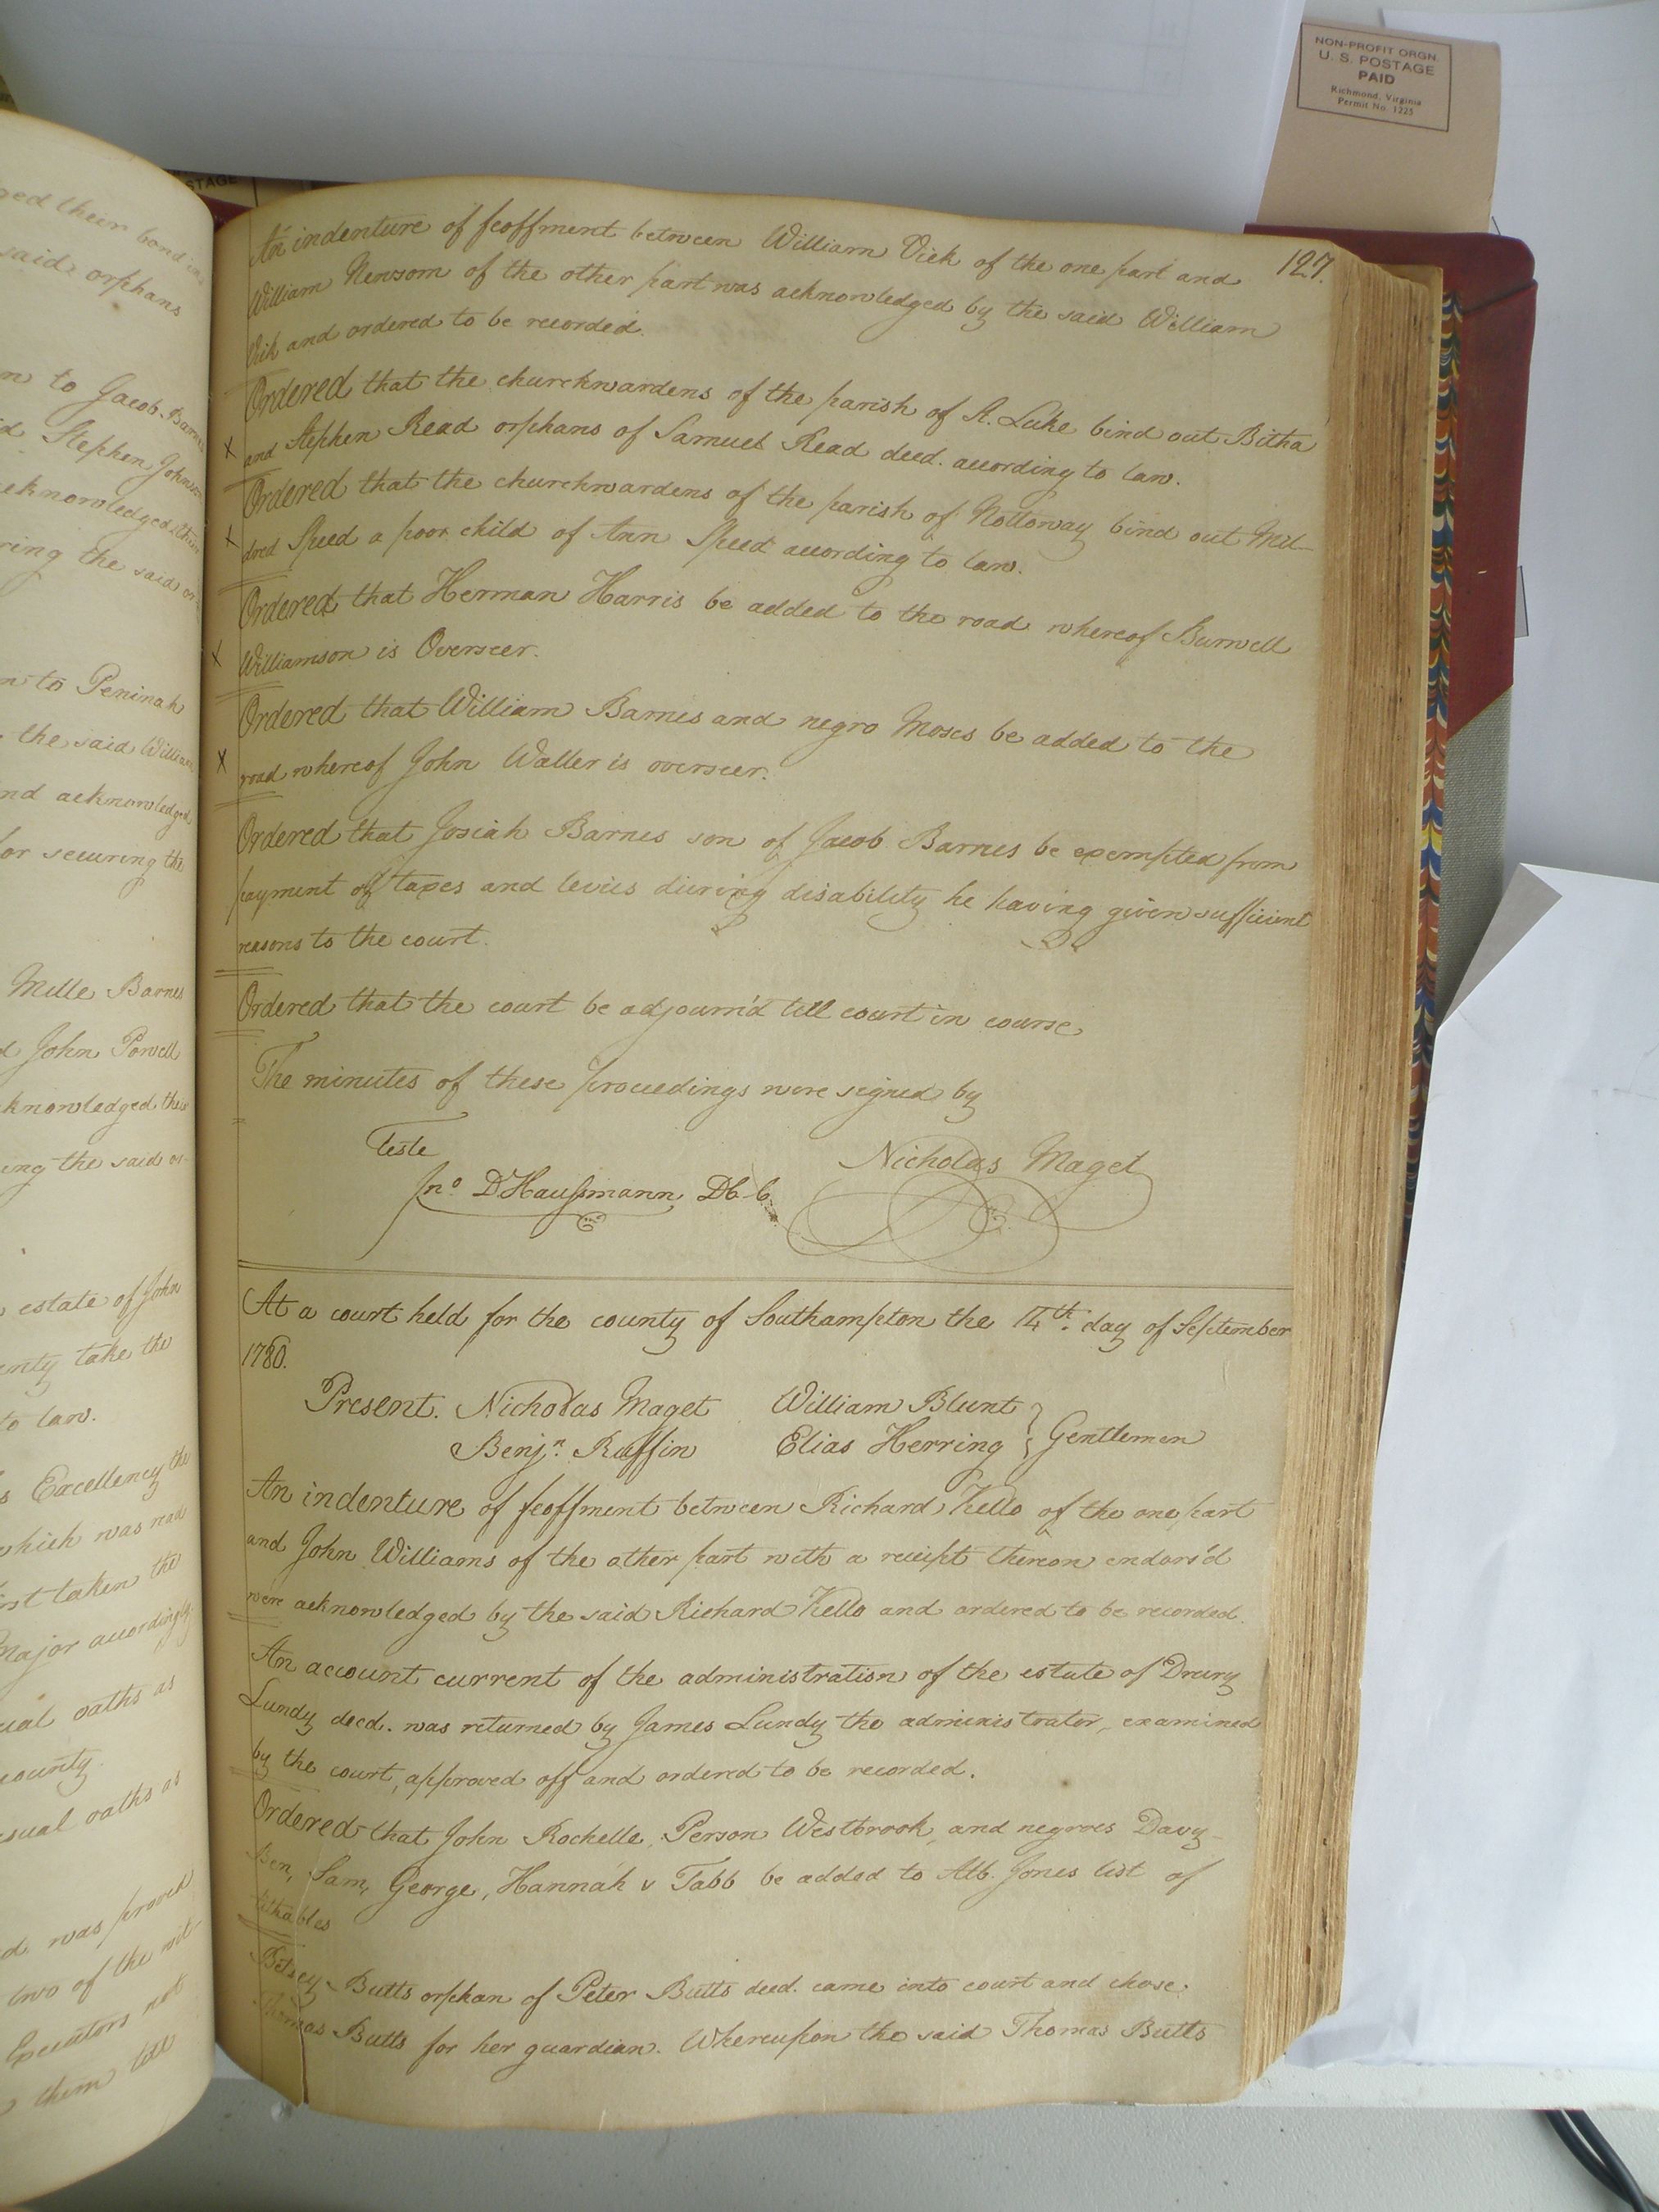 NON-PROFIT ORGN.
U. S. POSTAGE
PAID
Richmond, Virginia
Permit No. 1225
STAGE
ged their bond
said orphans
n to Jacob Barn
d Stephen Johnson
cknowledged their
ring the said or
n to Peninah
the said William
nd acknowledged
or securing the
Mille Barnes
d John Powell
knowledged their
ing the said or-
estate of John
enty take the
to law.
s Excellency the
which was read
rst taken the
Major accordingly
ual oaths as
county.
usual oaths as
d. was proved
two of the wit
Executors not
them till
127.
An indenture of feoffment between William Vick of the one part and
William Newsom of the other part was acknowledged by the said William
Vick and ordered to be recorded.
Ordered that the churchwardens of the parish of St. Luke bind out Bitha
x and Stephen Read orphans of Samuel Read decd. according to law.
Ordered that the churchwardens of the parish of Nottoway bind out Mil-
x dred Speed a poor child of Ann Speed according to law.
Ordered that Herman Harris be added to the road whereof Burwell
x Williamson is Overseer.
Ordered that William Barnes and negro Moses be added to the
x road whereof John Waller is overseer.
Ordered that Josiah Barnes son of Jacob Barnes be exempted from
payment of taxes and levies during disability he having given sufficient
reasons to the court.
Ordered that the court be adjourn'd till court in course
The minutes of these proceedings were signed by
Teste
Jno. D Haussmann D C. Nicholas Maget
At a court held for the county of Southampton the 14th. day of September
1780.
Present. Nicholas Maget William Blunt
Benjn. Ruffin Elias Herring } Gentlemen
An indenture of feoffment between Richard Kello of the one part
and John Williams of the other part with a receipt thereon endors'd
were acknowledged by the said Richard Kello and ordered to be recorded.
An account current of the administration of the estate of Drury
Lundy decd. was returned by James Lundy the administrator, examined
by the court, approved off and ordered to be recorded.
Ordered that John Rochelle, Person Westbrook, and negroes Davy
Ben, Sam, George, Hannah & Tabb be added to Alb. Jones list of
tithables
Betsey Butts orphan of Peter Butts decd. came into court and chose
Thomas Butts for her guardian. Whereupon the said Thomas Butts